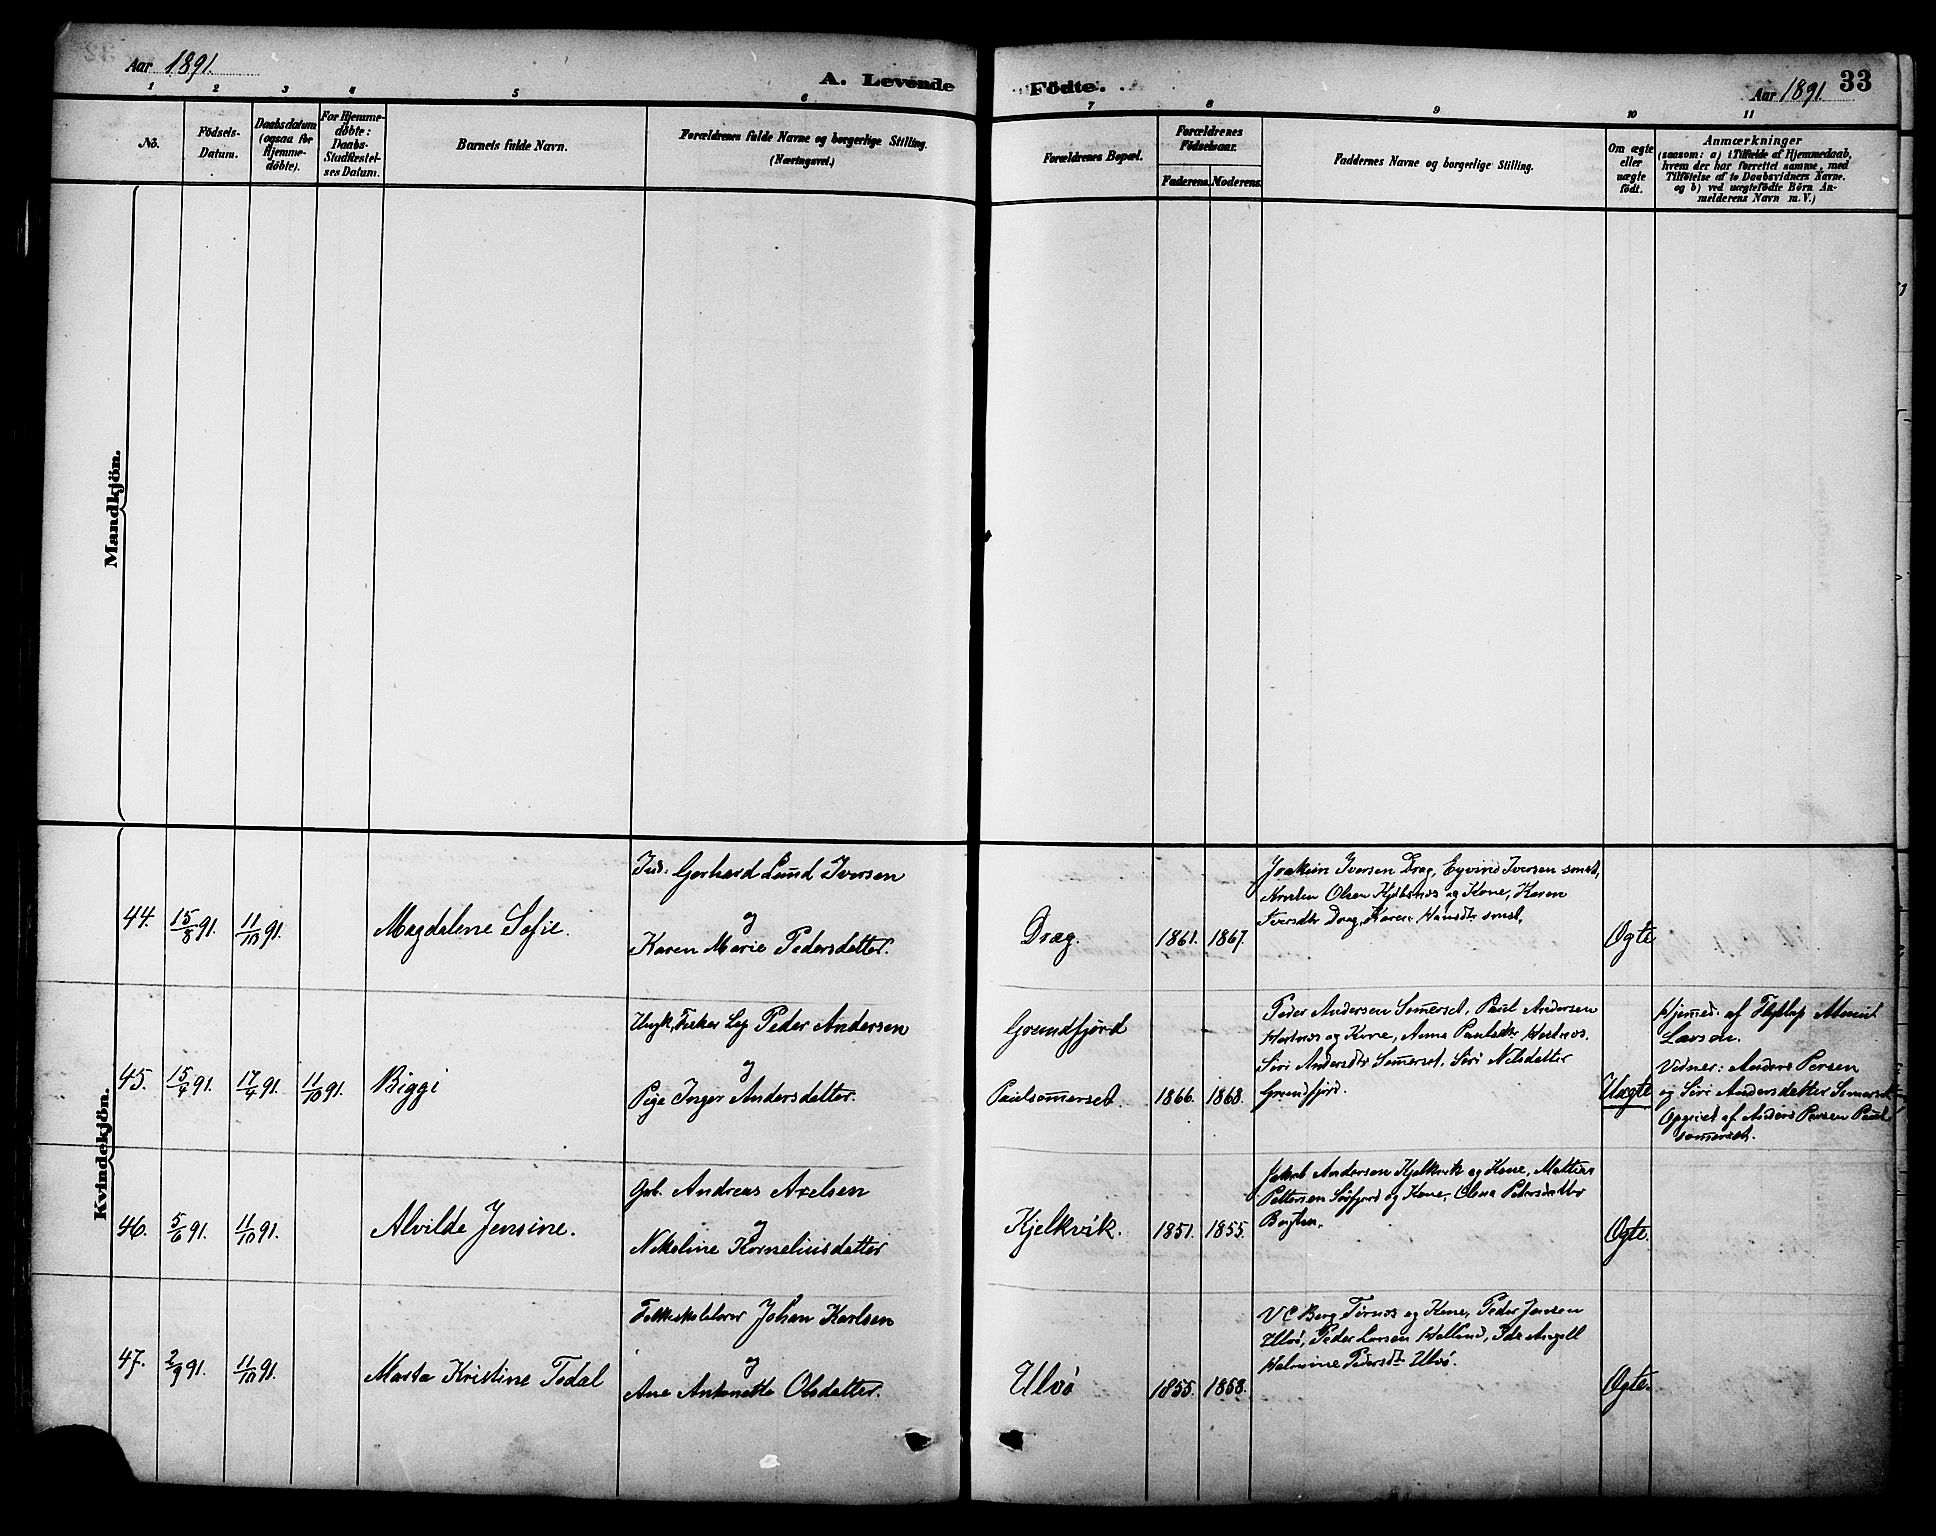 Aar 1891.
A. Levende
Födte.
Aar 1891.
33
1 2 3 4 5 6 7 8 9 10 11
No.
Födsels-
Datum.
Daabsdatum
(ogsaa for
Hjemme-
døbte).
For Hjemme-
døbte:
Daabs-
Stadfæstel-
ses Datum.
Barnets fulde Navn.
Forældrenes fulde Navne og borgerlige Stilling.
(Næringsvei.)
Forældrenes Bopæl.
Forældrenes
Födselsaar.
Faderens. Moderens.
Faddernes Navne og borgerlige Stilling.
Om ægte
eller
uægte
født.
Anmærkninger
(saasom: a) i Tilfælde af Hjemmedaab,
hvem der har forrettet samme, med
Tilföielse af to Daabsvidners Navne,
og b) ved uægtefödte Börn An-
melderens Navn m. V.)
Mandkjön.
Kvindekjön.
44.
15/8 91.
11/10 91.
Magdalene Sofie.
Gerhard Lund Iversen
og
Karen Marie Pedersdatter.
Drag.
1861.
1867.
Joakim Iversen Drag, Eyvind Iversen smst,
Olsen og Kone, Karen
Iversdtr Drag, Karen Hansdtr smst.
Ogte
45.
15/4 91.
17/4 91.
11/10 91.
Biggi
Ungk, Fisker Lap Peder Andersen
og
Pige Inger Andersdatter.
Grundfjord
Paulsomerset.
1866.
1868.
Peder Andersen Somerset, Paul Andersen
Hestnæs og Kone, Anna Paulsdtr Hestnæs.
Siri Andersdtr Somerset, Siri Nilsdatter
Grundfjord.
Uægte
Hjemmed. af
Larsen.
Vidner: Anders Persen
og Siri Andersdatter Somerset
Opgivet af Anders Persen Paul-
somerset.
46.
5/6 91.
11/10 91.
Alvilde Jensine.
Gbr. Andreas Axelsen
og
Nikoline Korneliusdatter
Kjelkvik.
1851.
1855.
Jakob Andersen Kjelkvik og Kone, Mattias
Pettersen Sörfjord og Kone, Olena Petersdatter
Ogte.
47.
2/9 91.
11/10 91.
Marta Kristine Todal
Folkeskolelærer Johan Karlsen
og
Ane Antonette Olsdatter.
Ulvø
1855.
1858.
V C Berg Tirnæs og Kone, Peder Jensen
Ulvö, Peder Larsen Helland, Angell
Halvine Pedersdtr Ulvö.
Ogte.